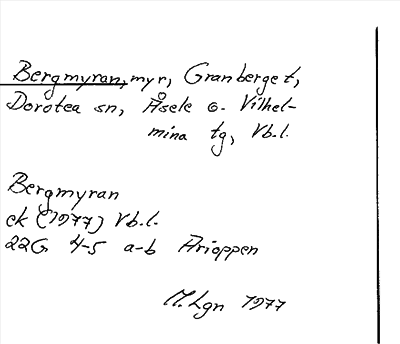 Bergmyran, myr, Granberget,
Dorotea sn, Åsele o. Vilhel-
mina tg, Vb.l.
Bergmyran
ek (1977) Vb.l.
22G 4-5 a-b Arioppen
M. Lgn 1977